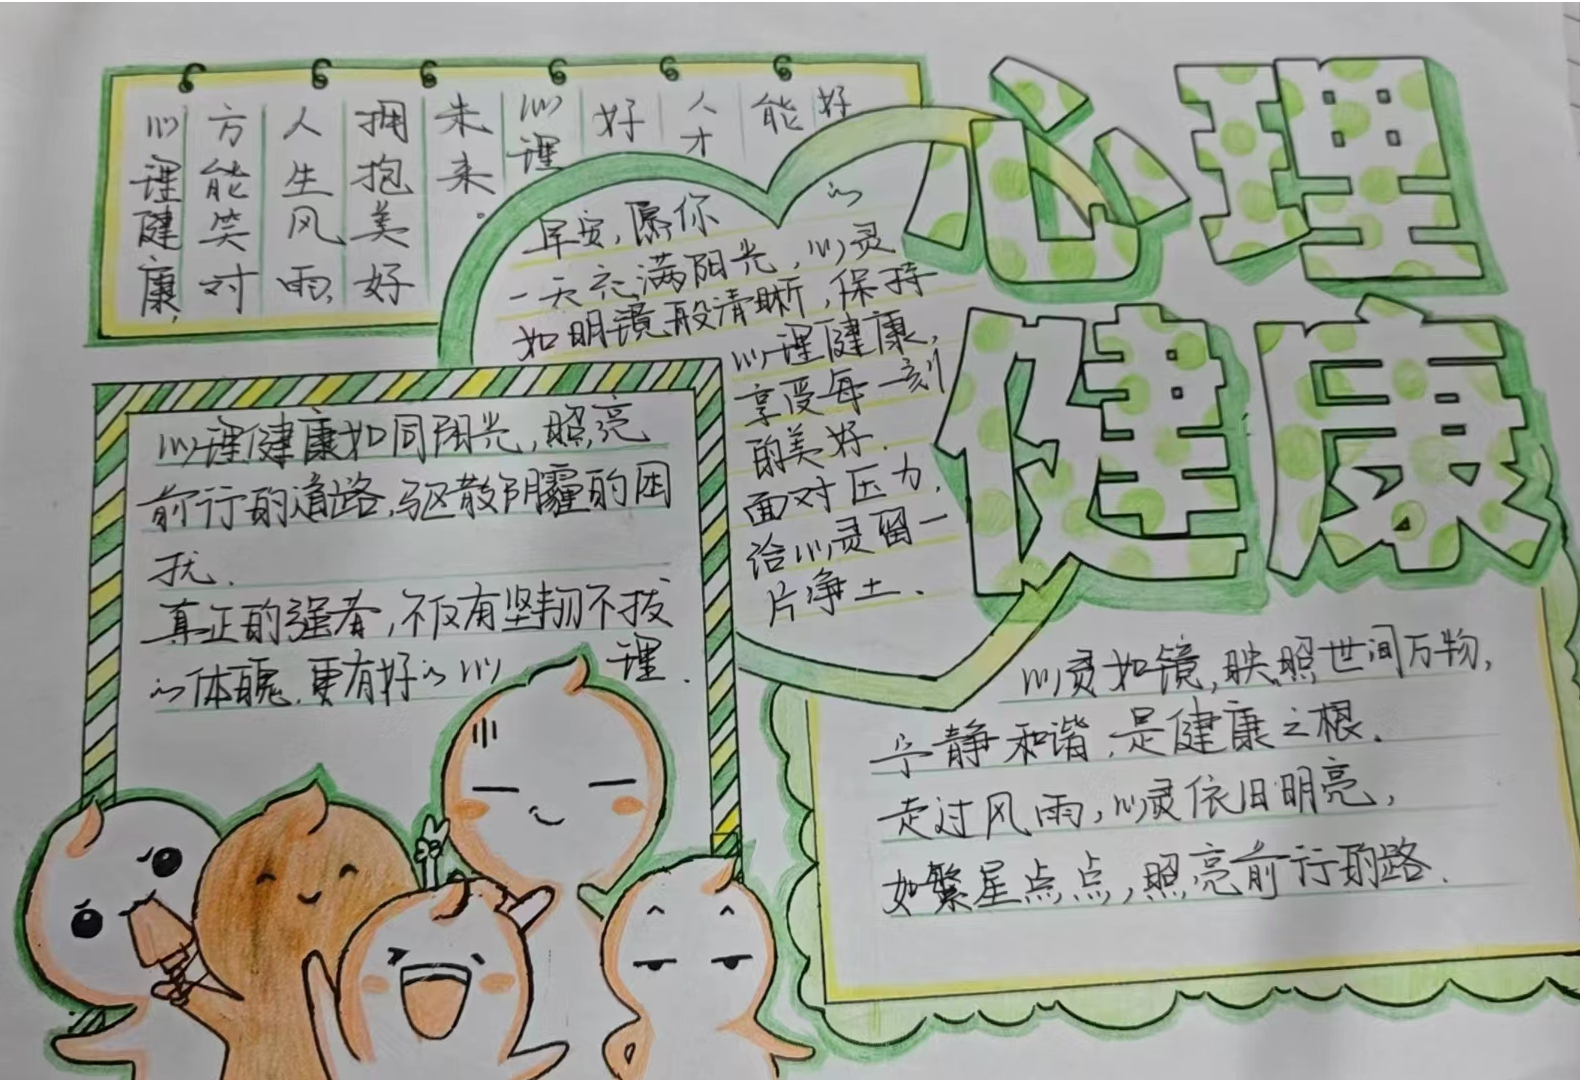 心理健康,
方能笑对
人生风雨,
拥抱美好
未来.
心理
好
人才
能
好
心理
健康
早安,愿你
的
一天充满阳光,心灵
如明镜般清晰,保持
心理健康,
享受每一刻
的美好.
面对压力,
给心灵留一
片净土.
心理健康如同阳光,照亮
前行的道路,驱散阴霾的困
扰.
真正的强者,不仅有坚韧不拔
的体魄,更有好的心理.
心灵如镜,映照世间万物,
宁静和谐,是健康之根.
走过风雨,心灵依旧明亮,
如繁星点点,照亮前行的路.